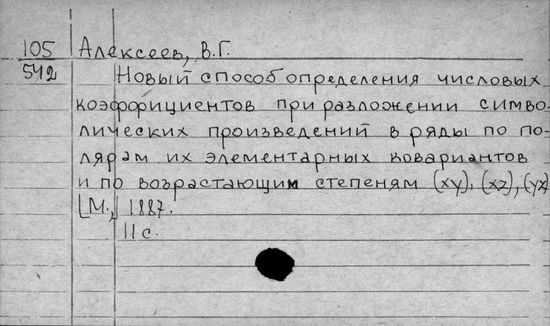 105 Алексеев, В.Г.
542
Новый способ определения числовых
коэффициентов при разложении симво-
лических произведений в ряды по по-
лярам их элементарных ковариантов
и по возрастающим степеням (xy), (xz), (yz)
[М., 1887.
11 с.